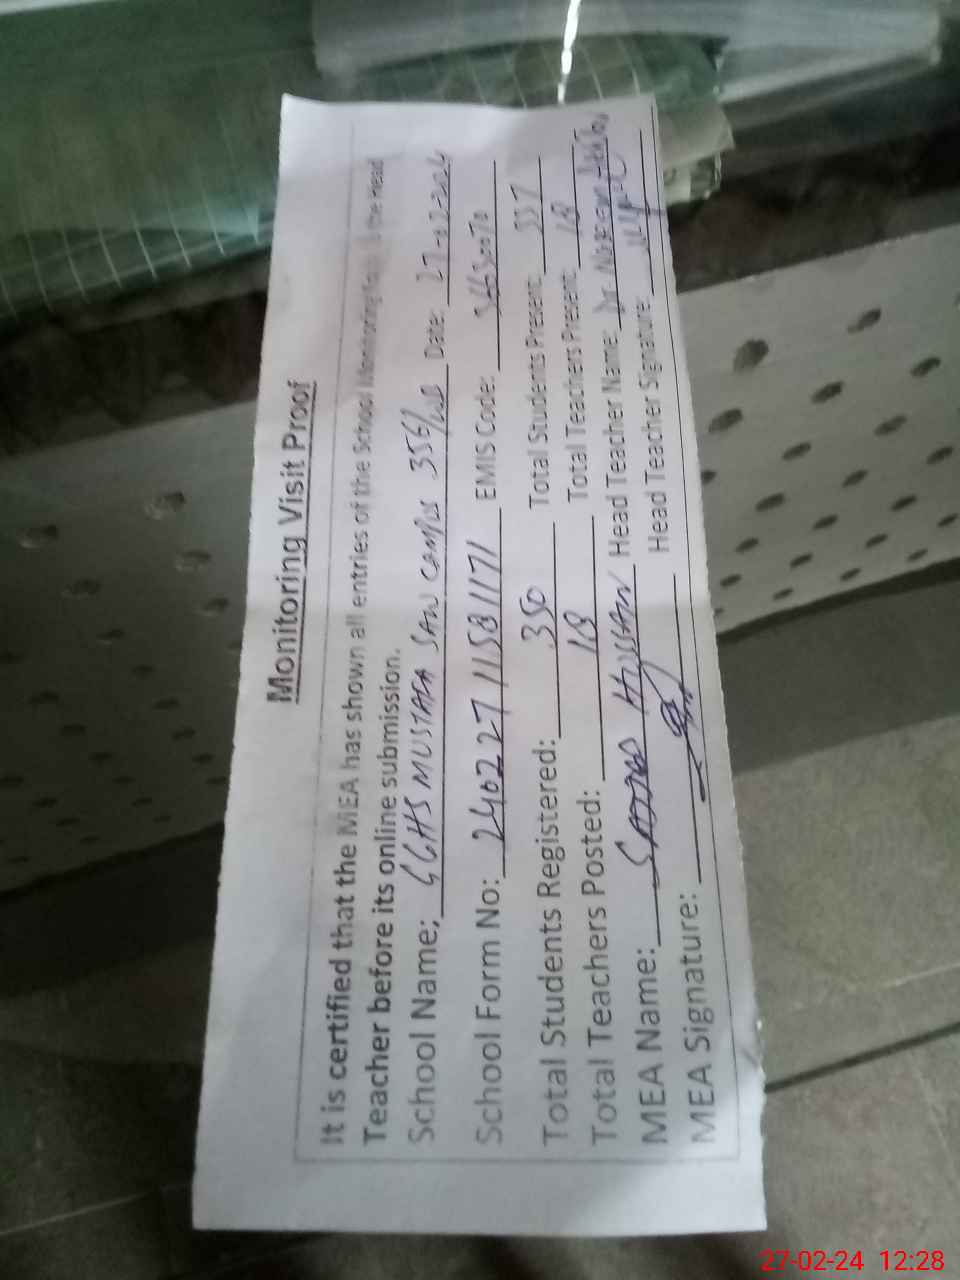 Monitoring Visit Proof
It is certified that the MEA has shown all entries of the School Monitoring to the Head
Teacher before its online submission.
School Name: GGHS MUSTAFA SAW CAMPUS 356/WB Date: 27-02-2024
School Form No: 240227115811171 EMIS Code:
Total Students Registered: 350 Total Students Present: 337
Total Teachers Posted: 18 Total Teachers Present: 18
MEA Name: HUSSAIN Head Teacher Name: Dr
MEA Signature: Head Teacher Signature:
27-02-24 12:28